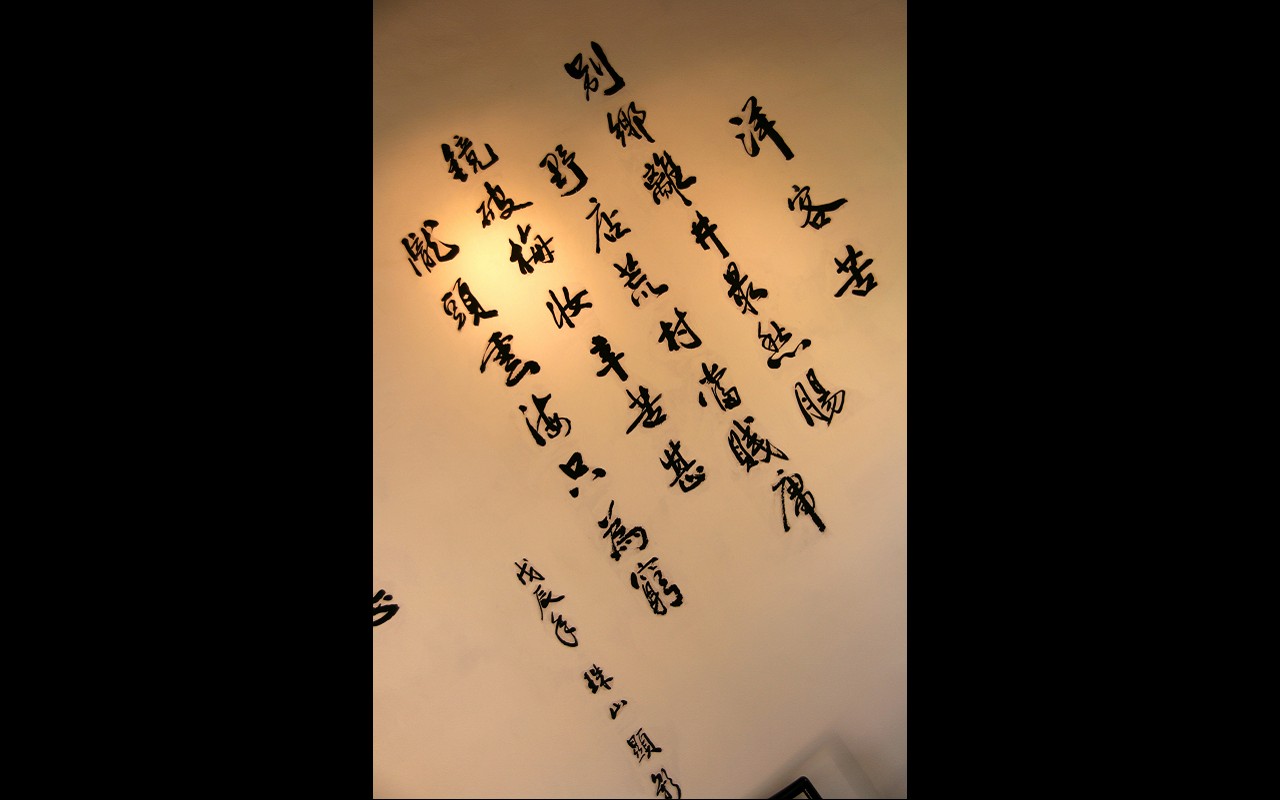 洋客苦
別鄉離井最愁腸
野店荒村當賤庸
鏡破梅妝辛苦甚
隴頭雲海只為窮
戊辰年 珠山顯